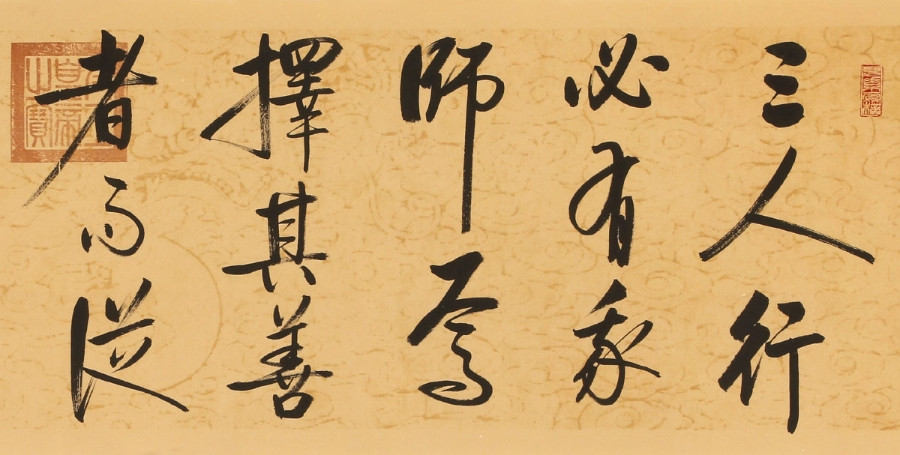 三人行
必有我
師焉
擇其善
者而從